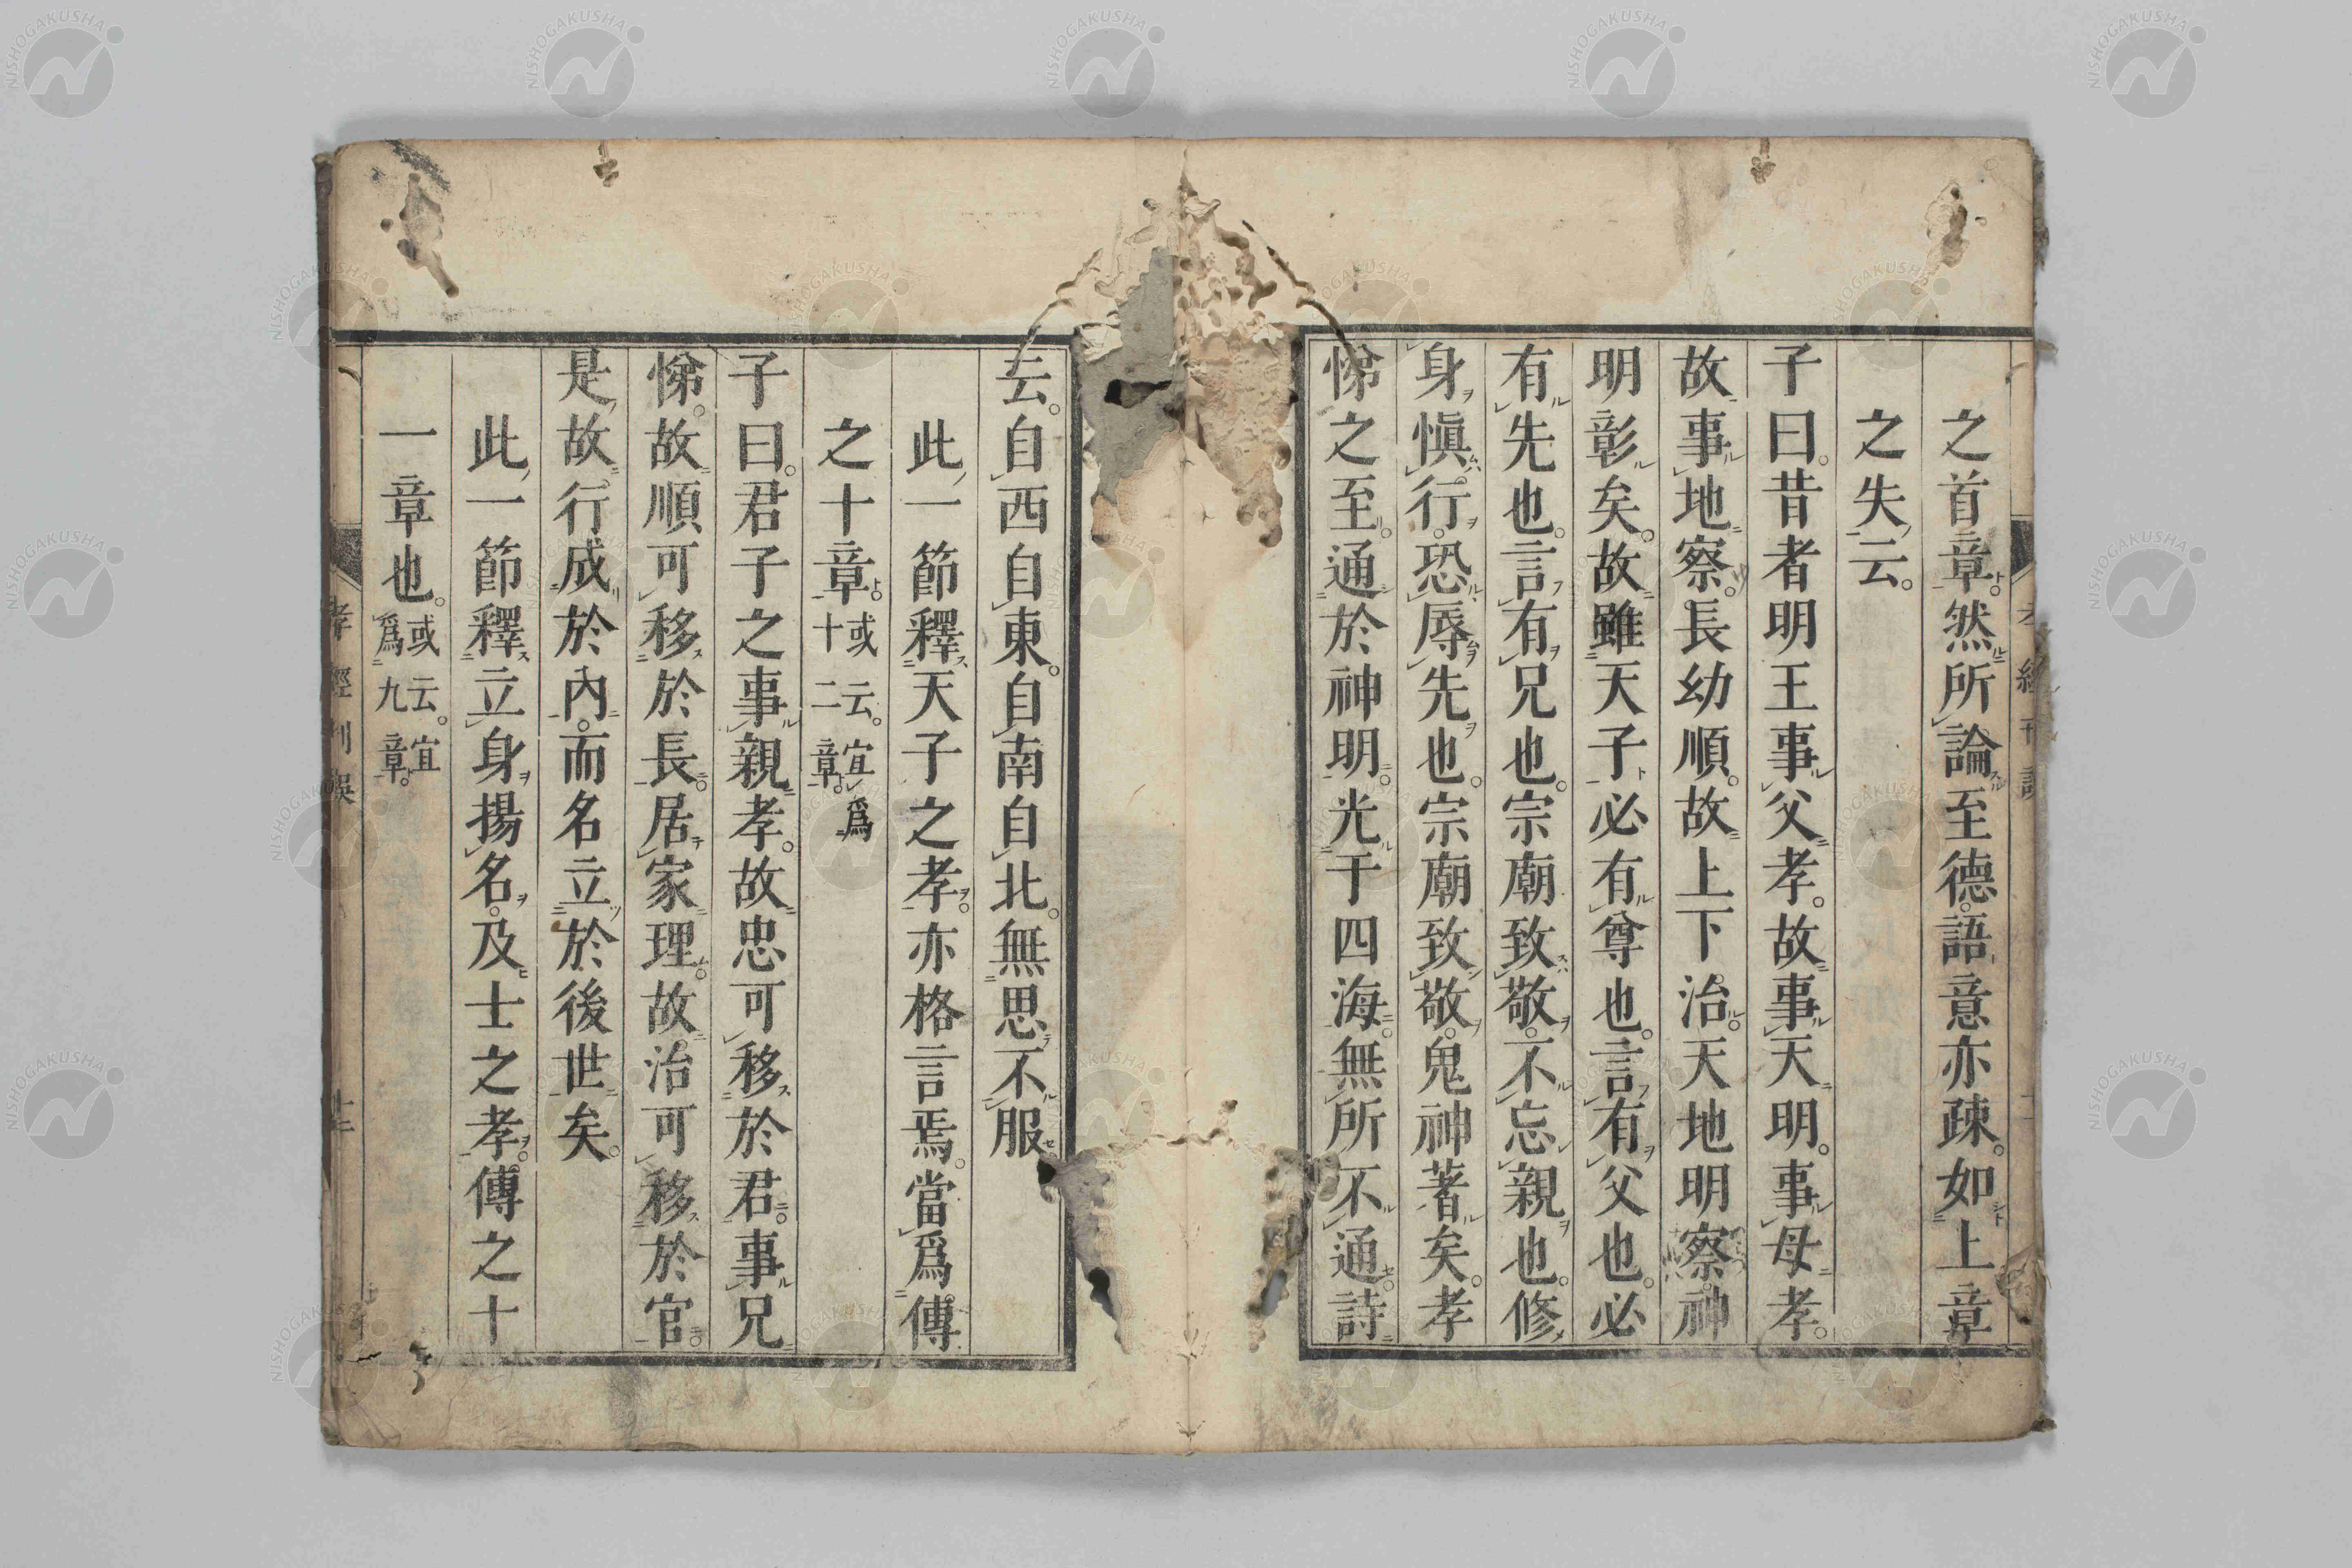 之首章然所論至德語意亦疎如上章
之失云。
子曰。昔者明王事父孝。故事天明。事母孝。
故事地察。長幼順。故上下治。天地明察。神
明彰矣。故雖天子必有尊也。言有父也。必
有先也。言有兄也。宗廟致敬。不忘親也。修
身慎行。恐辱先也。宗廟致敬。鬼神著矣。孝
悌之至。通於神明。光于四海。無所不通。詩
云。自西自東。自南自北。無思不服
此一節釋天子之孝。亦格言焉。當爲傳
之十章。或云。宜爲十二章。
子曰。君子之事親孝。故忠可移於君。事兄
悌。故順可移於長。居家理。故治可移於官。
是故行成於內。而名立於後世矣。
此一節釋立身揚名。及士之孝。傳之十
一章也。或云。宜爲九章。
孝經刊誤
NISHOGAKUSHA